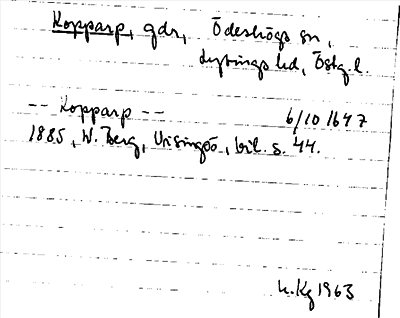 Kopparp, gdr, Ödeshögs sn,
Lysings hd, Östg. l.
-- Kopparp -- 6/10 1647
1885, W. Berg, Visingsö, bil. s. 44.
K. Kg 1963